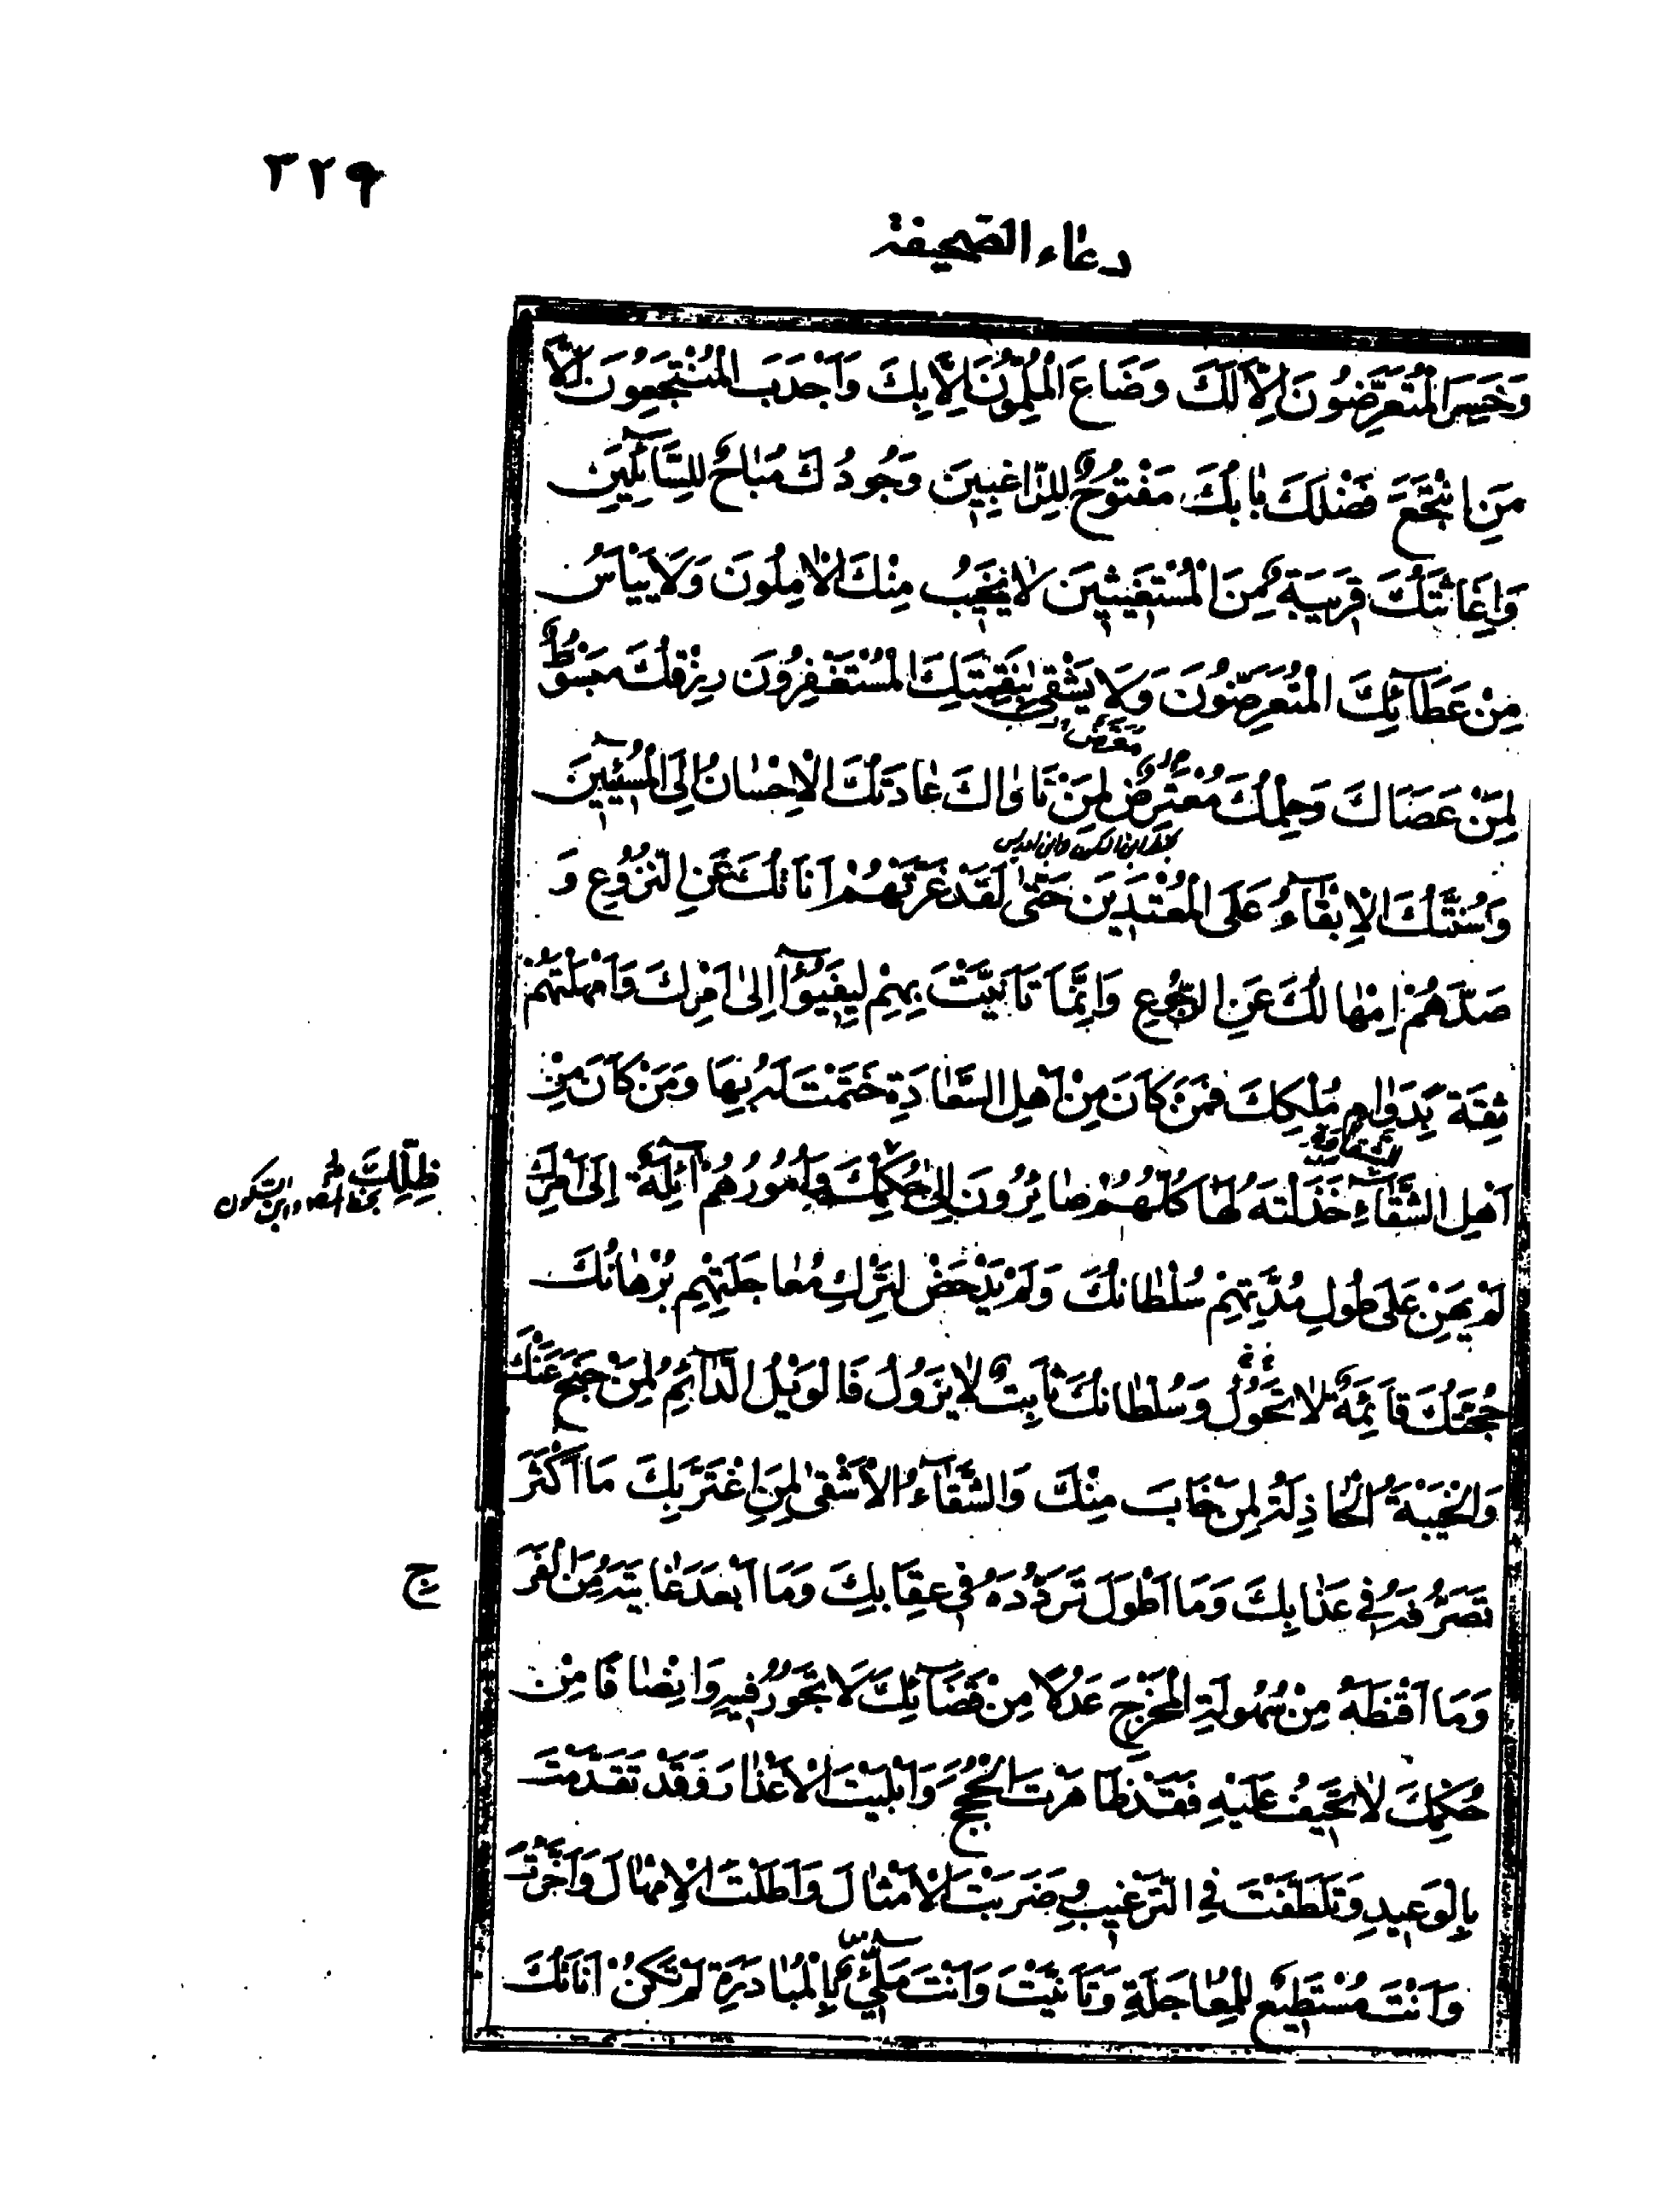 ٣٢٩
دعاء الصحيفة
وَخَسِرَ الْمُتَعَرِّضُونَ اِلَّا لَكَ وَضَاعَ الْمُلِمُّونَ اِلَّا بِكَ وَاَجْدَبَ الْمُنْتَجِعُونَ اِلَّا
مَنِ انْتَجَعَ فَضْلَكَ بَابُكَ مَفْتُوحٌ لِلرَّاغِبِينَ وَجُودُكَ مُبَاحٌ لِلسَّآئِلِينَ
وَاِغَاثَتُكَ قَرِيبَةٌ مِنَ الْمُسْتَغِيثِينَ لَا يَخِيبُ مِنْكَ الْاٰمِلُونَ وَلَا يَيْاَسُ
مِنْ عَطَآئِكَ الْمُتَعَرِّضُونَ وَلَا يَشْقَى بِنَقِمَتِكَ الْمُسْتَغْفِرُونَ رِزْقُكَ مَبْسُوطٌ
لِمَنْ عَصَاكَ وَحِلْمُكَ مُعْتَرِضٌ لِمَنْ نَاوَاكَ عَادَتُكَ الْاِحْسَانُ اِلَى الْمُسِيئِينَ
وَسُنَّتُكَ الْاِبْقَآءُ عَلَى الْمُعْتَدِينَ حَتّٰى لَقَدْ غَرَّتْهُمْ اَنَاتُكَ عَنِ النُّزُوعِ وَ
صَدَّهُمْ اِمْهَالُكَ عَنِ الرُّجُوعِ وَاِنَّمَا تَاَنَّيْتَ بِهِمْ لِيَفِيؤُا اِلٰى اَمْرِكَ وَاَمْهَلْتَهُمْ
ثِقَةً بِدَوَامِ مُلْكِكَ فَمَنْ كَانَ مِنْ اَهْلِ السَّعَادَةِ خَتَمْتَ لَهُ بِهَا وَمَنْ كَانَ مِنْ
اَهْلِ الشَّقَآءِ خَذَلْتَهُ لَهَا كُلُّهُمْ صَائِرُونَ اِلٰى حُكْمِكَ وَاُمُورُهُمْ اٰئِلَةٌ اِلَى اَمْرِكَ
لَمْ يَهِنْ عَلَى طُولِ مُدَّتِهِمْ سُلْطَانُكَ وَلَمْ يَدْحَضْ لِتَرْكِ مُعَاجَلَتِهِمْ بُرْهَانُكَ
حُجَّتُكَ قَائِمَةٌ لَا تَحُولُ وَسُلْطَانُكَ ثَابِتٌ لَا يَزُولُ فَالْوَيْلُ الدَّآئِمُ لِمَنْ جَنَحَ عَنْكَ
وَالْخَيْبَةُ الْخَاذِلَةُ لِمَنْ خَابَ مِنْكَ وَالشَّقَآءُ الْاَشْقٰى لِمَنِ اغْتَرَّ بِكَ مَا اَكْثَرَ
تَصَرُّفَهُ فِي عَذَابِكَ وَمَا اَطْوَلَ تَرَدُّدَهُ فِي عِقَابِكَ وَمَا اَبْعَدَ غَايَتَهُ مِنَ الْفَرَ
ج
وَمَا اَقْنَطَهُ مِنْ سُهُولَةِ الْمَخْرَجِ عَدْلًا مِنْ قَضَآئِكَ لَا تَجُورُ فِيهِ وَاِنْصَافًا مِنْ
حُكْمِكَ لَا تَحِيفُ عَلَيْهِ فَقَدْ ظَاهَرْتَ الْحُجَجَ وَاَبْلَيْتَ الْاَعْذَارَ وَقَدْ تَقَدَّمْتَ
بِالْوَعِيدِ وَتَلَطَّفْتَ فِي التَّرْغِيبِ وَضَرَبْتَ الْاَمْثَالَ وَاَطَلْتَ الْاِمْهَالَ وَاَخَّرْتَ
وَاَنْتَ مُسْتَطِيعٌ لِلْمُعَاجَلَةِ وَتَاَنَّيْتَ وَاَنْتَ مَلِيءٌ بِالْمُبَادَرَةِ لَمْ تَكُنْ اَنَاتُكَ